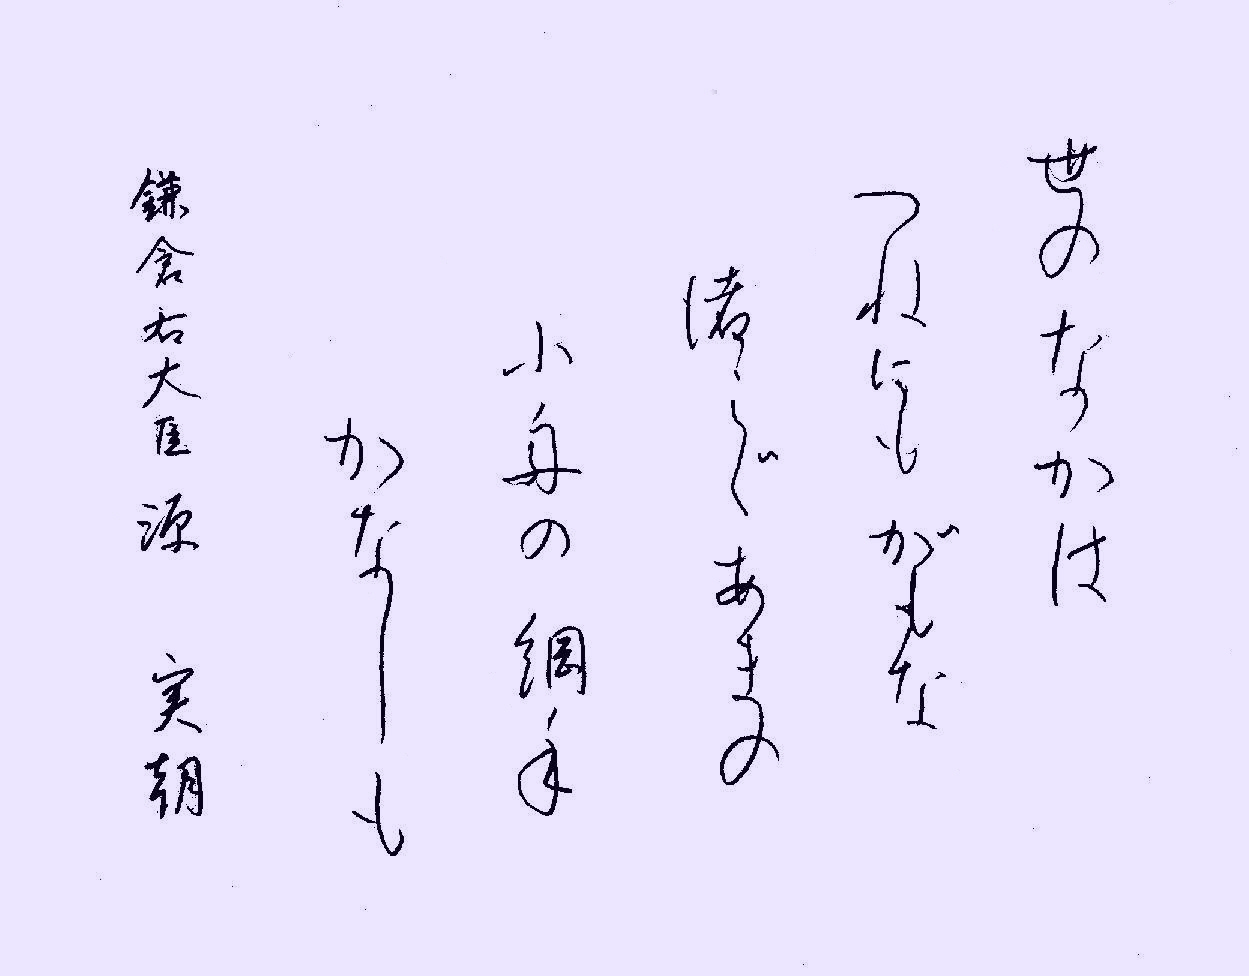 世のなかは
つねにもがもな
渚こぐあまの
小舟の綱手
かなしも
鎌倉右大臣 源 実朝